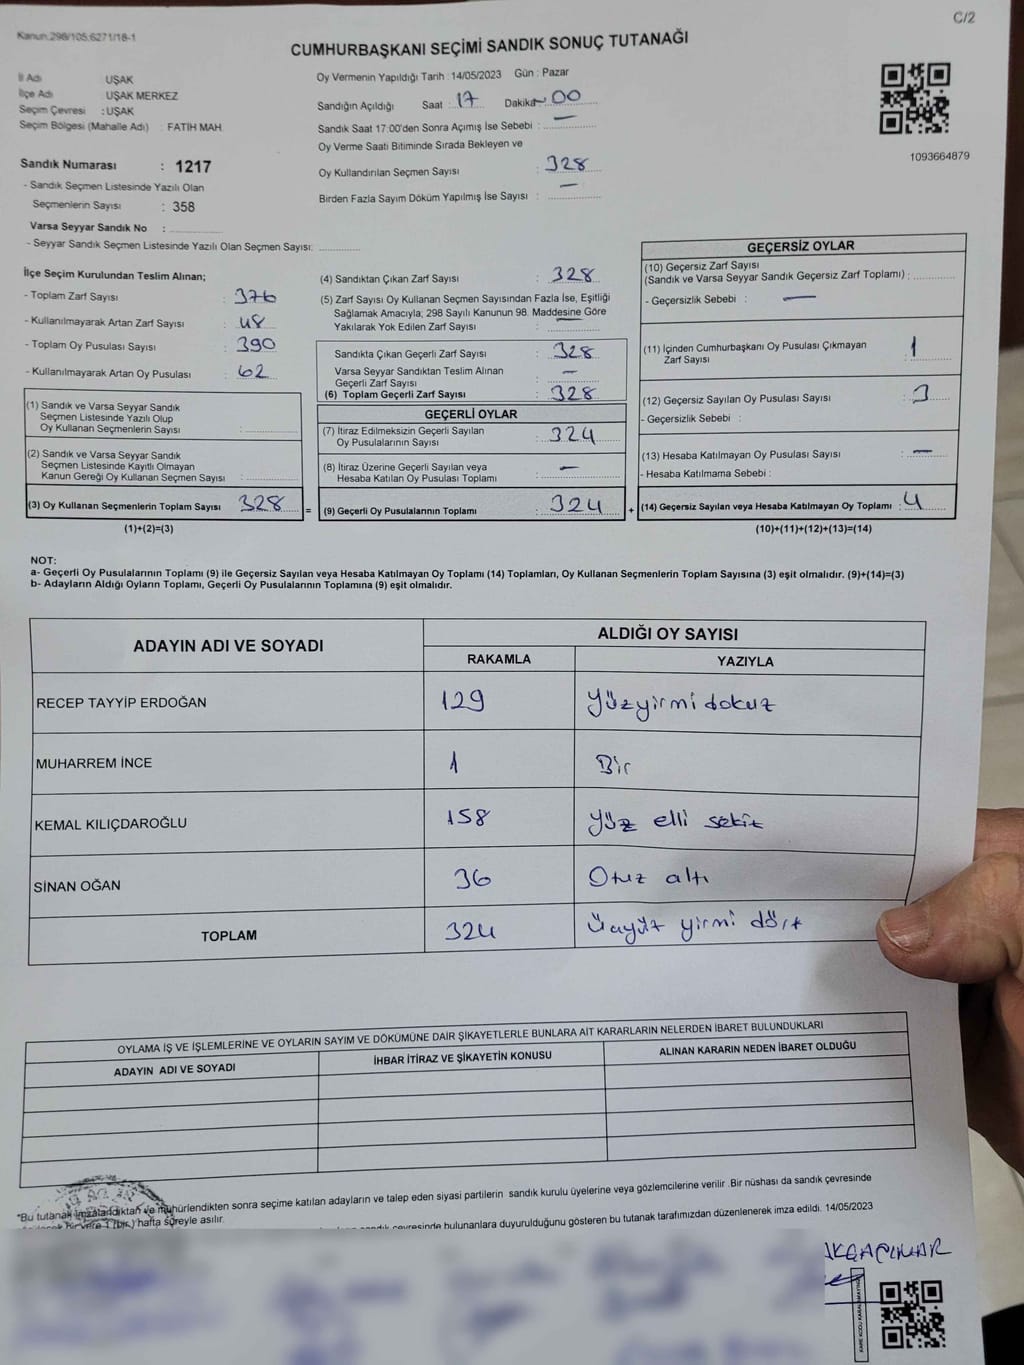 C/2
Kanun.298/105.6271/18-1
CUMHURBAŞKANI SEÇİMİ SANDIK SONUÇ TUTANAĞI
İl Adı : UŞAK
İlçe Adı : UŞAK MERKEZ
Seçim Çevresi : UŞAK
Seçim Bölgesi (Mahalle Adı) : FATİH MAH.
Sandık Numarası : 1217
- Sandık Seçmen Listesinde Yazılı Olan
Seçmenlerin Sayısı : 358
Varsa Seyyar Sandık No :
- Seyyar Sandık Seçmen Listesinde Yazılı Olan Seçmen Sayısı:
Oy Vermenin Yapıldığı Tarih : 14/05/2023 Gün : Pazar
Sandığın Açıldığı Saat : 17 Dakika 00
Sandık Saat 17:00'den Sonra Açımış İse Sebebi : —
Oy Verme Saati Bitiminde Sırada Bekleyen ve
Oy Kullandırılan Seçmen Sayısı : 328
Birden Fazla Sayım Döküm Yapılmış İse Sayısı : —
1093664879
İlçe Seçim Kurulundan Teslim Alınan;
- Toplam Zarf Sayısı : 376
- Kullanılmayarak Artan Zarf Sayısı : 48
- Toplam Oy Pusulası Sayısı : 390
- Kullanılmayarak Artan Oy Pusulası : 62
(1) Sandık ve Varsa Seyyar Sandık
Seçmen Listesinde Yazılı Olup
Oy Kullanan Seçmenlerin Sayısı :
(2) Sandık ve Varsa Seyyar Sandık
Seçmen Listesinde Kayıtlı Olmayan
Kanun Gereği Oy Kullanan Seçmen Sayısı :
(3) Oy Kullanan Seçmenlerin Toplam Sayısı 328 =
(1)+(2)=(3)
(4) Sandıktan Çıkan Zarf Sayısı : 328
(5) Zarf Sayısı Oy Kullanan Seçmen Sayısından Fazla İse, Eşitliği
Sağlamak Amacıyla; 298 Sayılı Kanunun 98. Maddesine Göre
Yakılarak Yok Edilen Zarf Sayısı : —
Sandıkta Çıkan Geçerli Zarf Sayısı : 328
Varsa Seyyar Sandıktan Teslim Alınan
Geçerli Zarf Sayısı : —
(6) Toplam Geçerli Zarf Sayısı : 328
GEÇERLİ OYLAR
(7) İtiraz Edilmeksizin Geçerli Sayılan
Oy Pusulalarının Sayısı : 324
(8) İtiraz Üzerine Geçerli Sayılan veya
Hesaba Katılan Oy Pusulası Toplamı : —
(9) Geçerli Oy Pusulalarının Toplamı : 324 +
GEÇERSİZ OYLAR
(10) Geçersiz Zarf Sayısı
(Sandık ve Varsa Seyyar Sandık Geçersiz Zarf Toplamı) :
- Geçersizlik Sebebi : —
(11) İçinden Cumhurbaşkanı Oy Pusulası Çıkmayan
Zarf Sayısı : 1
(12) Geçersiz Sayılan Oy Pusulası Sayısı : 3
- Geçersizlik Sebebi :
(13) Hesaba Katılmayan Oy Pusulası Sayısı : —
- Hesaba Katılmama Sebebi :
(14) Geçersiz Sayılan veya Hesaba Katılmayan Oy Toplamı : 4
(10)+(11)+(12)+(13)=(14)
NOT:
a- Geçerli Oy Pusulalarının Toplamı (9) ile Geçersiz Sayılan veya Hesaba Katılmayan Oy Toplamı (14) Toplamları, Oy Kullanan Seçmenlerin Toplam Sayısına (3) eşit olmalıdır. (9)+(14)=(3)
b- Adayların Aldığı Oyların Toplamı, Geçerli Oy Pusulalarının Toplamına (9) eşit olmalıdır.
ADAYIN ADI VE SOYADI ALDIĞI OY SAYISI
RAKAMLA YAZIYLA
RECEP TAYYİP ERDOĞAN 129 Yüzyirmi dokuz
MUHARREM İNCE 1 Bir
KEMAL KILIÇDAROĞLU 158 Yüz elli sekiz
SİNAN OĞAN 36 Otuz altı
TOPLAM 324 Üçyüz yirmi dört
OYLAMA İŞ VE İŞLEMLERİNE VE OYLARIN SAYIM VE DÖKÜMÜNE DAİR ŞİKAYETLERLE BUNLARA AİT KARARLARIN NELERDEN İBARET BULUNDUKLARI
ADAYIN ADI VE SOYADI İHBAR İTİRAZ VE ŞİKAYETİN KONUSU ALINAN KARARIN NEDEN İBARET OLDUĞU
*Bu tutanak imzalandıktan ve mühürlendikten sonra seçime katılan adayların ve talep eden siyasi partilerin sandık kurulu üyelerine veya gözlemcilerine verilir .Bir nüshası da sandık çevresinde
bir yere 1 (bir) hafta süreyle asılır.
sandık çevresinde bulunanlara duyurulduğunu gösteren bu tutanak tarafımızdan düzenlenerek imza edildi. 14/05/2023